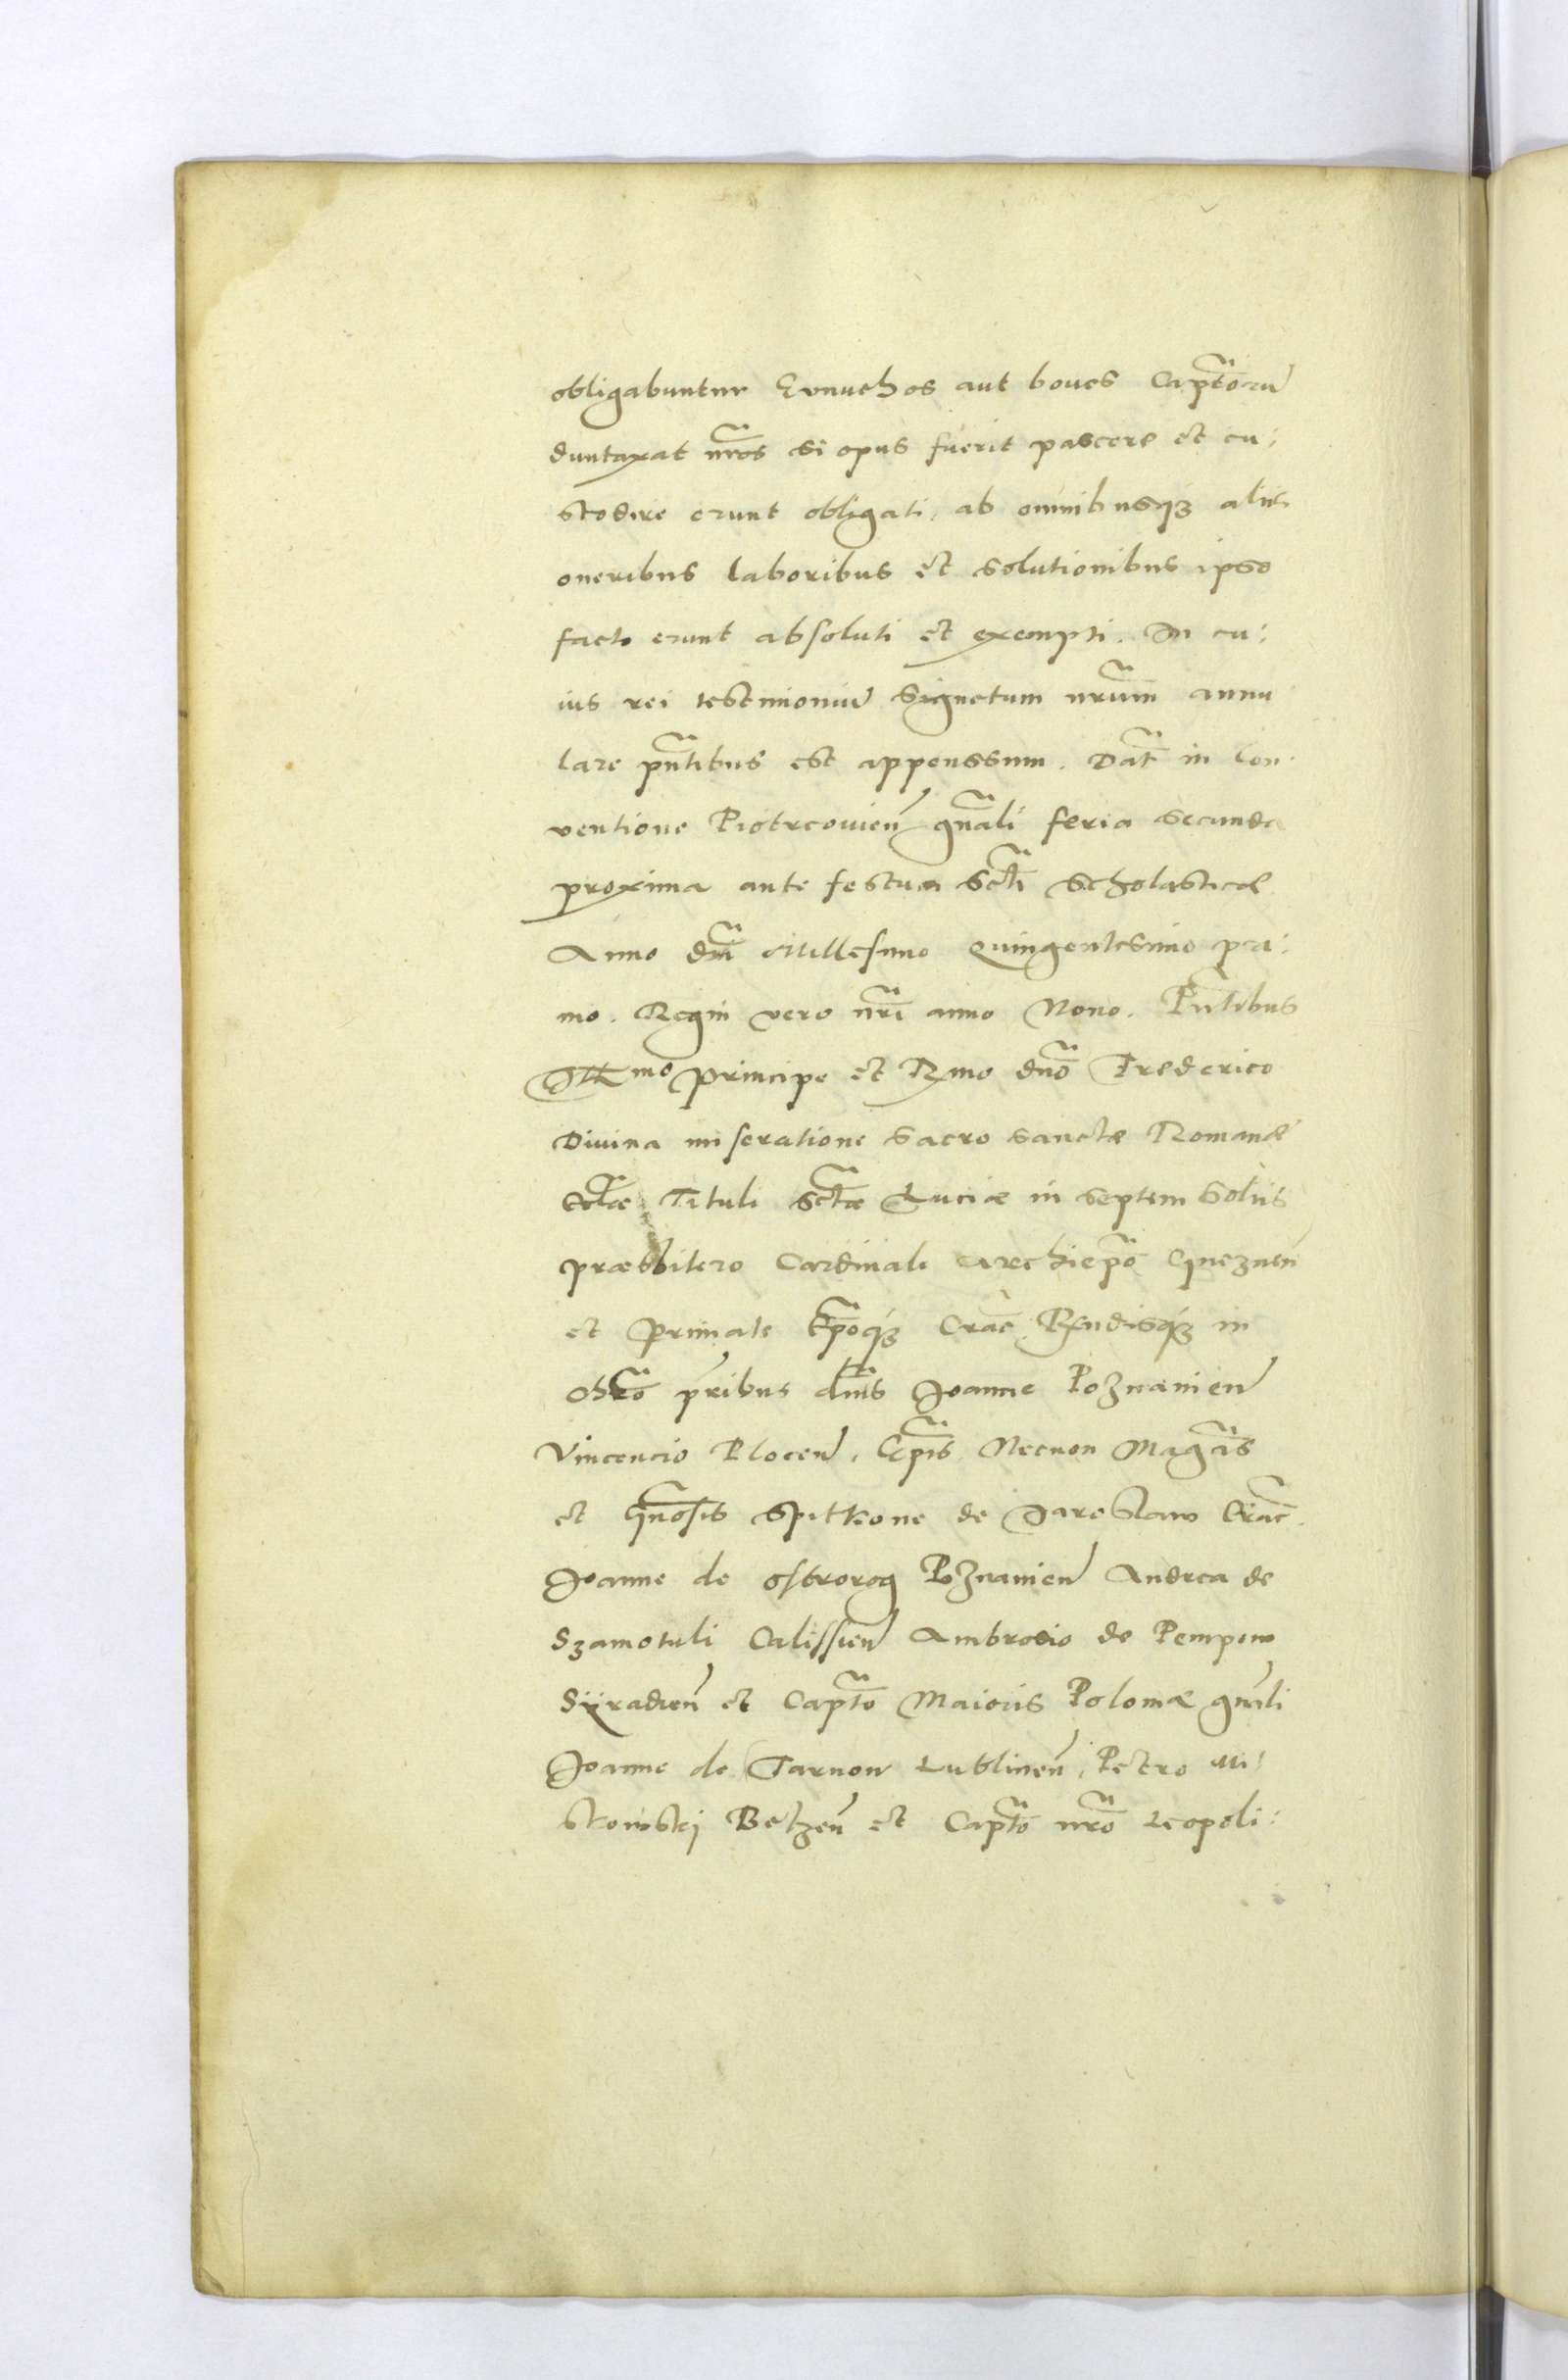 obligabuntur Eunuchos aut boues Captorũ
duntaxat nros si opus fuerit pascere et cu:
stodire erunt obligati, ab omnibusq3 alijs
oneribus laboribus et solutionibus ipso
facto erunt absoluti et exempti. In cu:
ius rei testimoniũ Signetum nrum annu
lare pñtibus est appenssum. Dat in Con:
ventione Piotrcouieñ gñali feria secunda
proxima ante festum Scti Scholasticæ
Anno dñi Millesimo Quingentesimo pri:
mo. Regni vero nri anno Nono. Pñtibus
Illmo Principe et Rmo dño Frederico
Divina miseratione sacro sanctæ Romanæ
Ecclæ Tituli Sctæ Luciæ in septem Solijs
præsbitero Cardinali Archiepo Gneznen
et Primate Epoq3 Crac Rendisq3 in
Chro pribus dñis Joanne Poznanien
Vincencio Plocen, Epis Necnon Magcis
et Gnosis Spitkone de Jaroslaw Crac.
Joanne de Ostrorog Poznanien Andrea de
Szamotuli Calissien Ambrosio de Pempow
Syradien et Capto Maioris Poloniæ gnali
Joanne de Tarnow Lublinen, Petro Mi:
skowskj Belzen et Capto nro Leopoli: